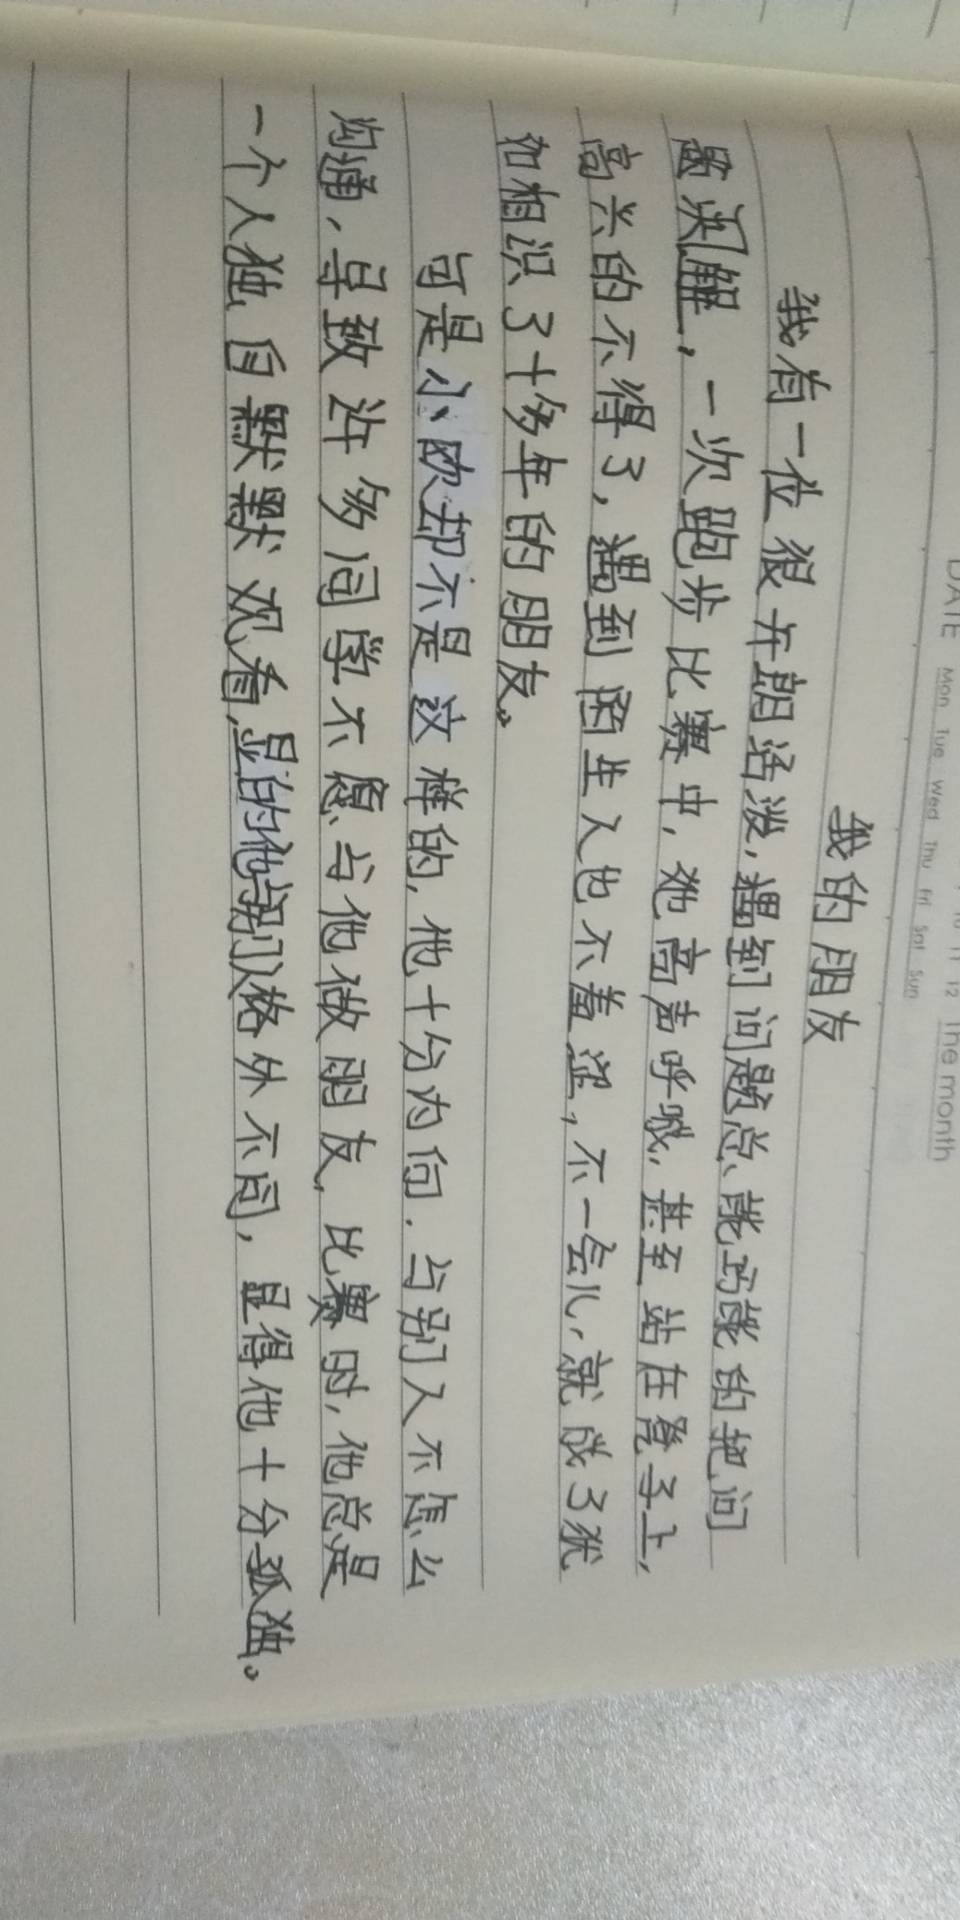 DATE Mon Tue Wed Thu Fri Sat Sun
10 11 12 The month
我的朋友
我有一位很开朗活泼,遇到问题总能巧能的把问
题决解,一次跑步比赛中,她高声呼喊,甚至站在凳子上,
高兴的不得了,遇到陌生人也不羞涩,不一会儿,就成了犹
如相识了十多年的朋友。
可是小欧却不是这样的,他十分内向.与别人不怎么
沟通,导致许多同学不愿与他做朋友,比赛时,他总是
一个人独自默默观看,显的他与别人格外不同,显得他十分孤独。